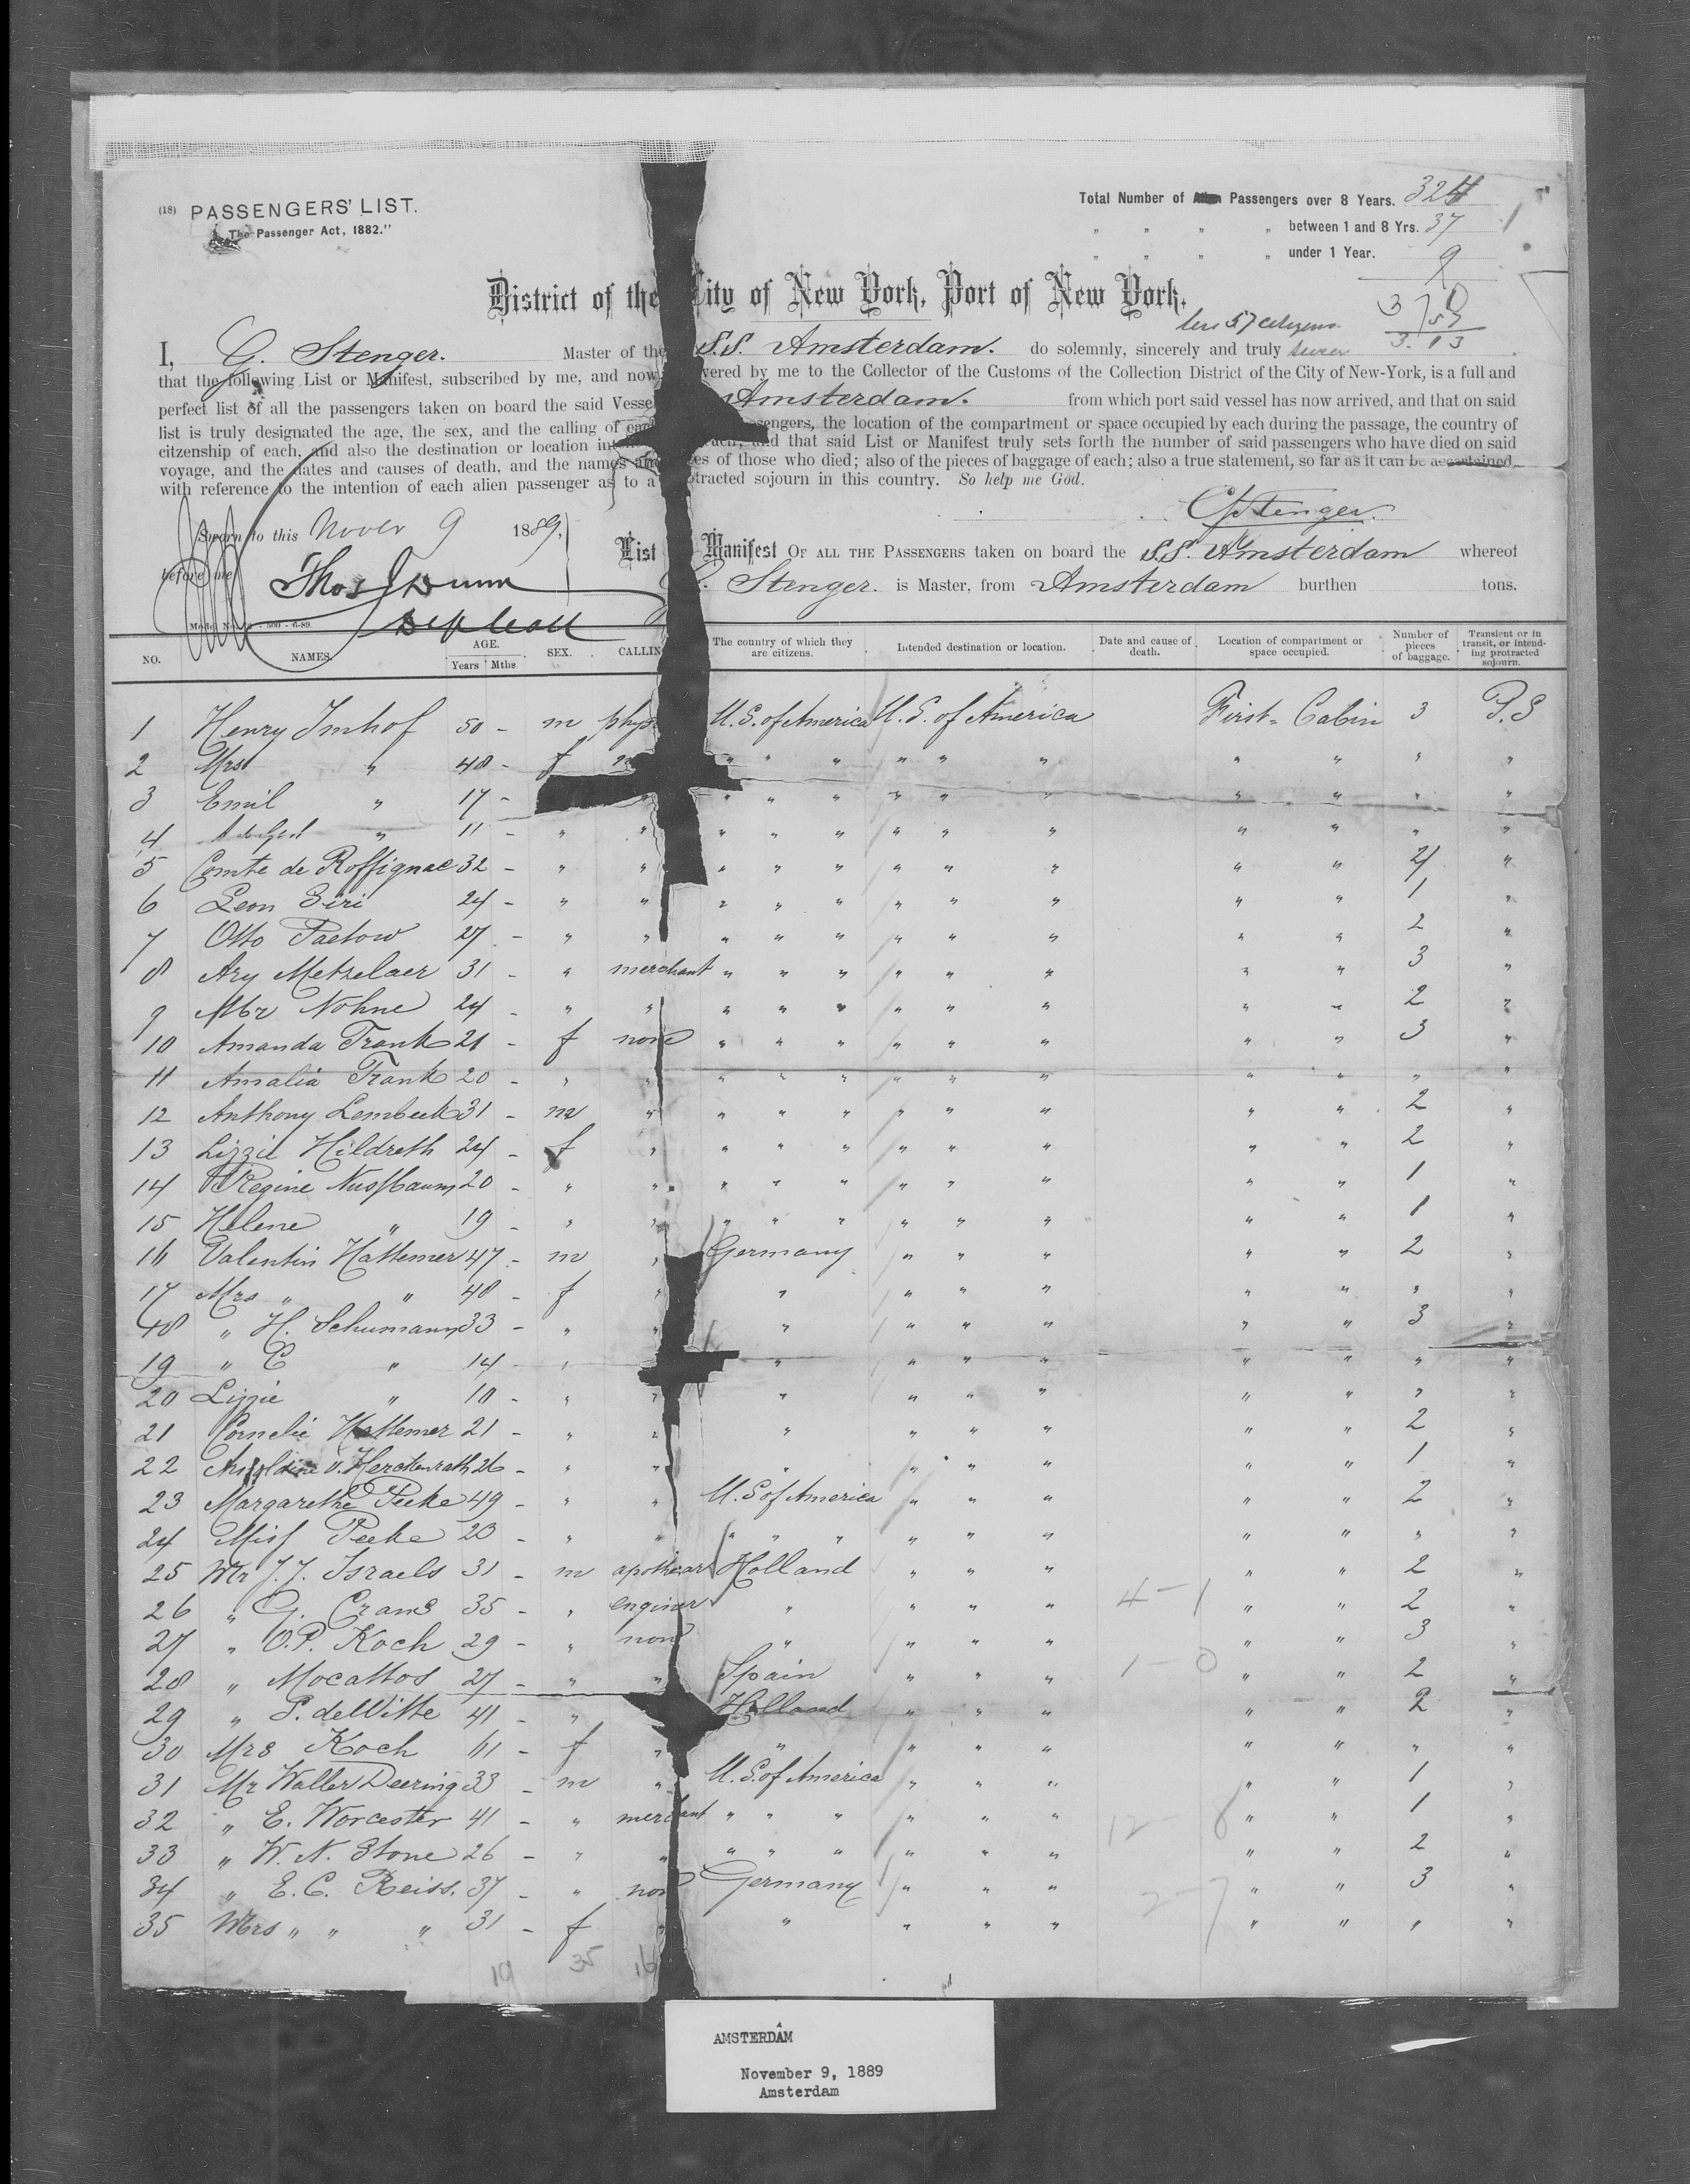 (18) PASSENGERS' LIST.
The Passenger Act, 1882."
Total Number of Passengers over 8 Years. 324
" " " " between 1 and 8 Yrs. 37
" " " " under 1 Year. 9
370
57
313
less 57 citizens
District of the City of New York, Port of New York.
I, G. Stenger. Master of the S.S. Amsterdam. do solemnly, sincerely and truly swear
that the following List or Manifest, subscribed by me, and now vered by me to the Collector of the Customs of the Collection District of the City of New-York, is a full and
perfect list of all the passengers taken on board the said Vesse Amsterdam. from which port said vessel has now arrived, and that on said
list is truly designated the age, the sex, and the calling of each sengers, the location of the compartment or space occupied by each during the passage, the country of
citzenship of each, and also the destination or location int each, and that said List or Manifest truly sets forth the number of said passengers who have died on said
voyage, and the dates and causes of death, and the names and es of those who died; also of the pieces of baggage of each; also a true statement, so far as it can be ascertained
with reference to the intention of each alien passenger as to a otracted sojourn in this country. So help me God.
G Stenger.
Sworn to this Novbr 9 1889,
before me
Thos J Dunn
Dep Coll
List Manifest OF ALL THE PASSENGERS taken on board the S.S. Amsterdam whereof
Stenger. is Master, from Amsterdam burthen tons.
NO. NAMES. AGE. Years Mths SEX. CALLIN The country of which they are citizens. Intended destination or location. Date and cause of death. Location of compartment or space occupied. Number of pieces of baggage. Transient or in transit, or intending protracted sojourn.
1 Henry Imhof 50 - m phys U.S. of America U.S. of America First-Cabin 3 P.S
2 Mrs " 48 - f " " " " " " " " " "
3 Emil " 17 - " " " " " " " " " "
4 " 11 - " " " " " " " " " " " "
5 Comte de Roffignac 32 - " " " " " " " " " " 4 "
6 Leon Siri 24 - " " " " " " " " " " 1 "
7 Otto Paetow 27 - " " " " " " " " " " 2 "
8 Ary Metzelaer 31 - " merchant " " " " " " " " 3 "
9 Mr Nohne 24 - " " " " " " " " " " 2 "
10 Amanda Frank 21 - f none " " " " " " " " 3 "
11 Amalia Frank 20 - " " " " " " " " " " " "
12 Anthony Lembeck 31 - m " " " " " " " " " 2 "
13 Lizzie Hildreth 24 - f " " " " " " " " " 2 "
14 Regine Nussbaum 20 - " " " " " " " " " " 1 "
15 Helene " 19 - " " " " " " " " " " 1 "
16 Valentin Hattemer 47 - m " Germany " " " " " 2 "
17 Mrs " " 48 - f " " " " " " " " "
18 " H. Schumann 33 - " " " " " " " " 3 "
19 " C " 14 - " " " " " " " " "
20 Lizzie " 10 - " " " " " " " " " "
21 Cornelie Hattemer 21 - " " " " " " " " 2 "
22 v. Herckenrath 26 - " " " " " " " " 1 "
23 Margarethe Peeke 49 - " " U.S of America " " " " " 2 "
24 Miss Peeke 20 - " " " " " " " " " " " "
25 Mr J.J. Israels 31 - m apothecar Holland " " " " " 2 "
26 " G. Crans 35 - " enginer " " " " 4-1 " " 2 "
27 " O.P. Koch 29 - " none " " " " " " 3 "
28 " Mocattos 27 - " " Spain " " " 1-0 " " 2 "
29 " S. de Witte 41 - " Holland " " " " " 2 "
30 Mrs Koch 61 - f " " " " " " " " "
31 Mr Walter Deering 33 - m " U.S. of America " " " " " 1 "
32 " E. Worcester 41 - " merchant " " " " " " 12-8 " " 1 "
33 " W. N. Stone 26 - " " " " " " " " " " 2 "
34 " E.C. Reiss. 37 - " non Germany " " " 2-7 " " 3 "
35 Mrs " " " 31 - f " " " " " " " " "
19 35 16
AMSTERDAM
November 9, 1889
Amsterdam